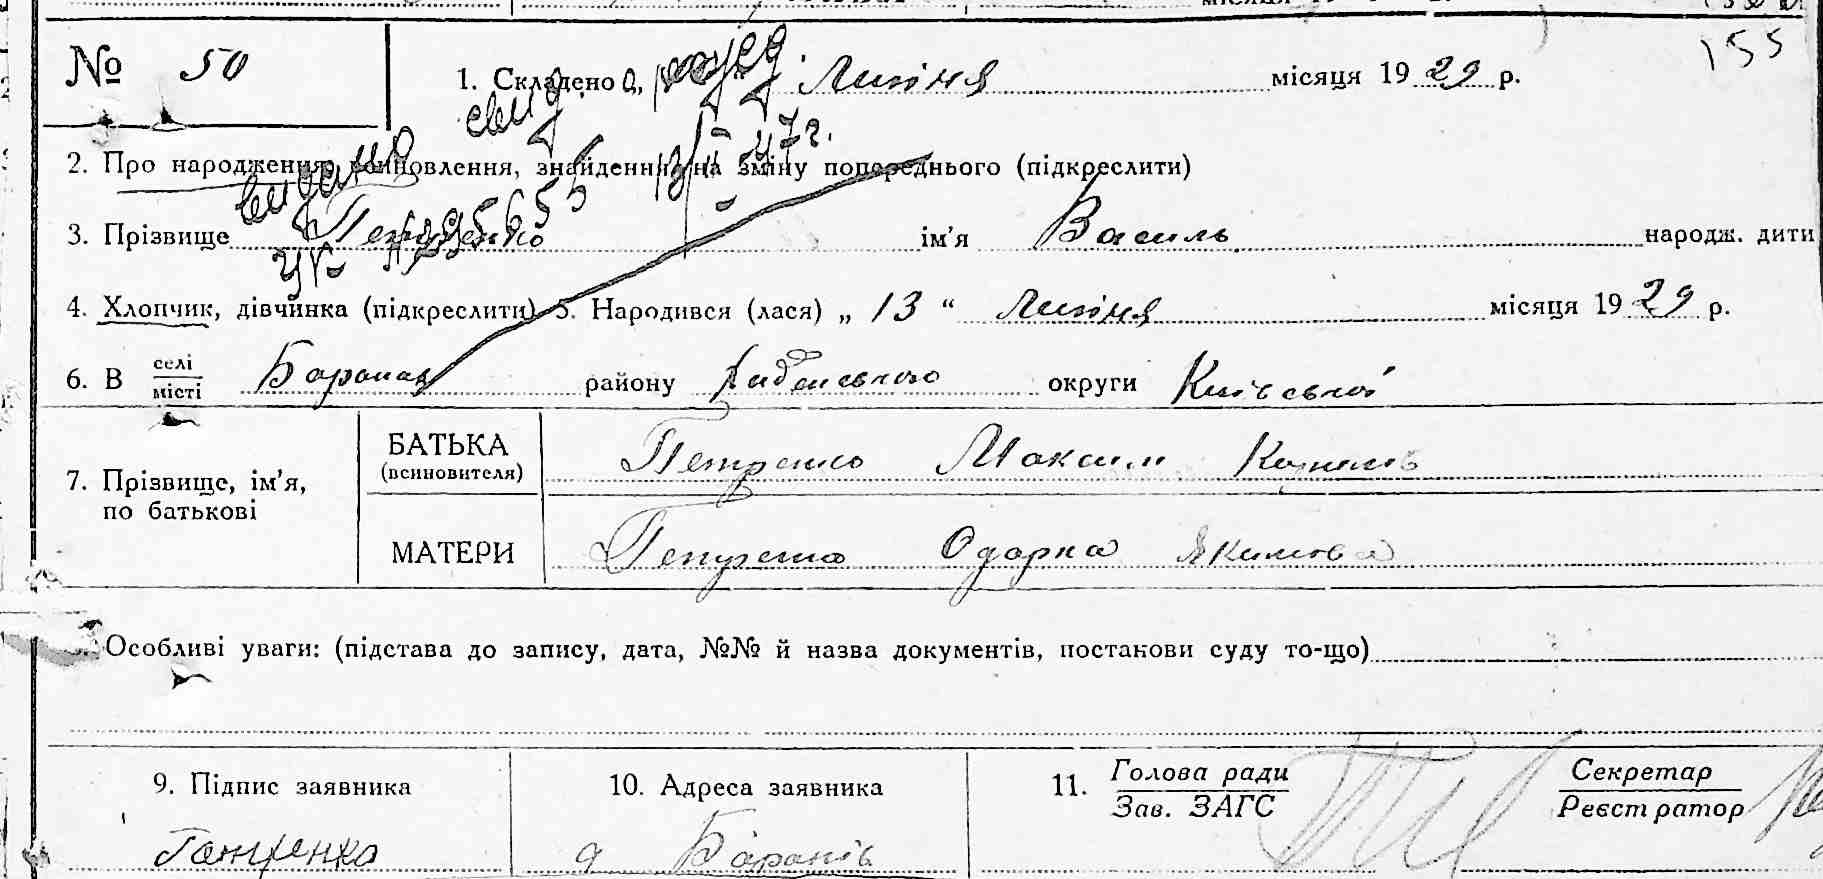 155
№ 50
1. Складено „ Липня місяця 1929 р.
свид. рожд.
2. Про народження, всиновлення, знайдення, на зміну попереднього (підкреслити)
выдано 13/II-47г.
3. Прізвище Петренко ім’я Василь народж. дити
4. Хлопчик, дівчинка (підкреслити) 5. Народився (лася) „ 13 “ Липня місяця 1929 р.
6. В селі/місті Баранах району округи Київської
7. Прізвище, ім’я, по батькові
БАТЬКА (всиновителя) Петренко Максим
МАТЕРИ Петренко Одарка Якимова
Особливі уваги: (підстава до запису, дата, №№ й назва документів, постанови суду то-що)
9. Підпис заявника
10. Адреса заявника
11. Голова ради / Зав. ЗАГС
Секретар / Реєстратор
Петренко